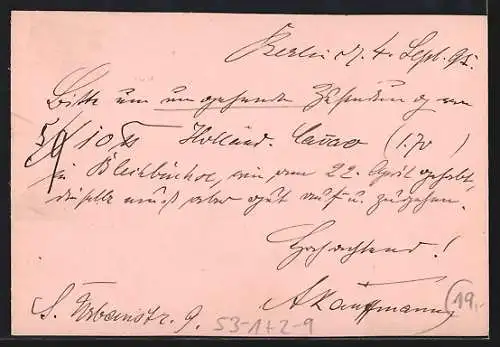 Berlin d. 4. Sept. 95.
Bitte um umgehende Zusendung von
10 Holländ. Cacao (1.70)
in Blechbüchse, wie am 22. April gehabt,
dieselbe muß aber gut auf u. zugehen.
Hochachtend!
A Kauffmann
19,-
S. Urbanstr. 9.
53-1+2-9